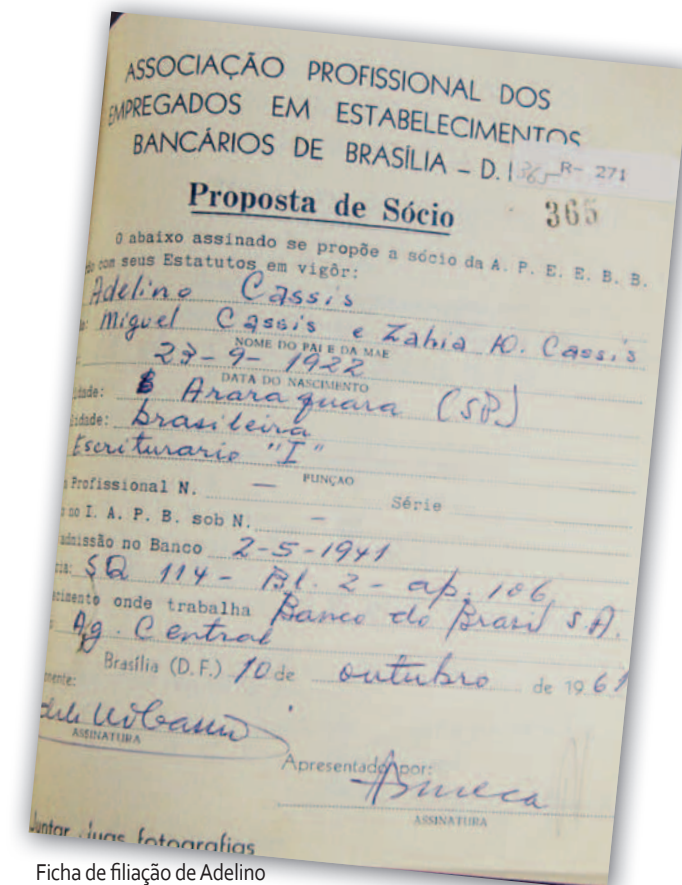 ASSOCIAÇÃO PROFISSIONAL DOS
EMPREGADOS EM ESTABELECIMENTOS
BANCÁRIOS DE BRASÍLIA – D.
R- 271
Proposta de Sócio
365
O abaixo assinado se propõe a sócio da A. P. E. E. B. B.
com seus Estatutos em vigôr:
Adelino Cassis
Miguel Cassis e Zahia Cassis
NOME DO PAI E DA MAE
23-9-1922
DATA DO NASCIMENTO
Araraquara (SP)
brasileira
Escriturario "I"
FUNÇAO
Profissional N. — Série
no I. A. P. B. sob N. –
admissão no Banco 2-5-1941
SQ 114 - Bl. 2 - ap. 106
onde trabalha Banco do Brasil S.A.
Ag. Central
Brasília (D.F.) 10 de outubro de 1961
ASSINATURA
Apresentado por:
ASSINATURA
Juntar fotografias
Ficha de filiação de Adelino